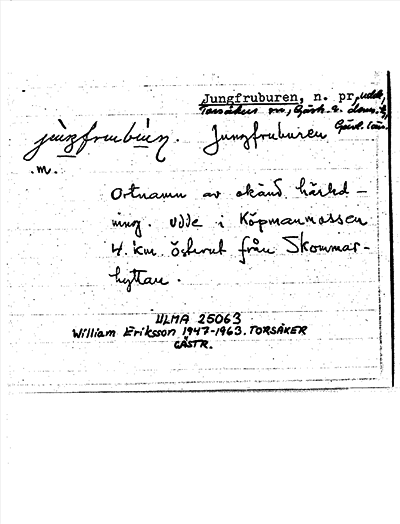 Jungfruburen, n. pr. udde,
Torsåkers sn, Gästr. Ö. doms.
Gävl. län.
jùngfrubúrεn. Jungfruburen
.m.
Ortnamn av okänd härled-
ning. Udde i Köpmanmossen
4 km österut från Skommar-
hyttan.
ULMA 25063
William Eriksson 1947-1963. TORSÅKER
GÄSTR.